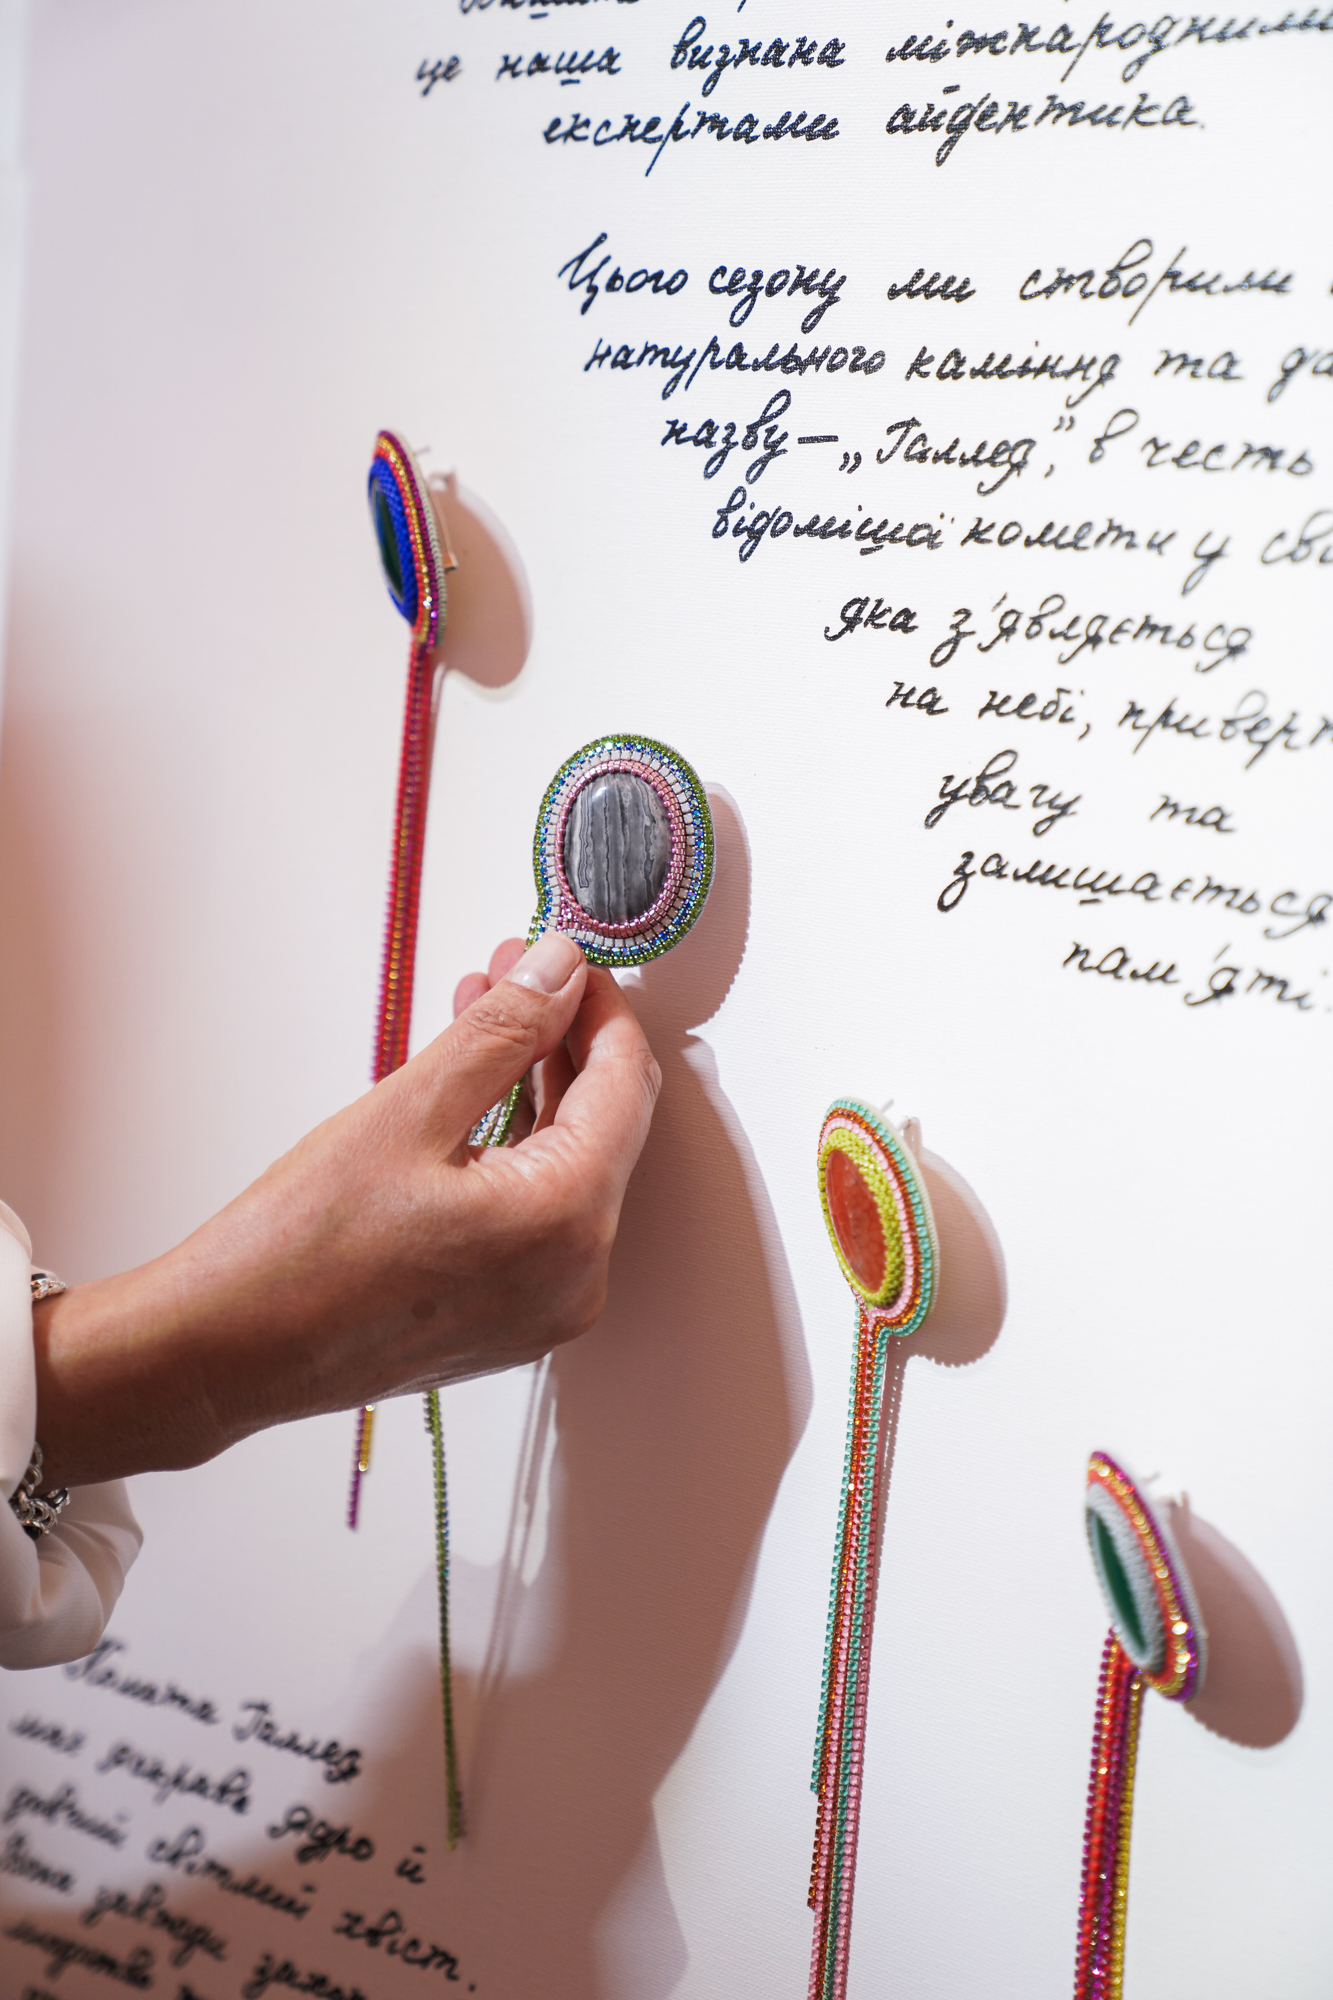 це наша визнана міжнародними
експертами айдентика.
Цього сезону ми створили
натурального каміння та
назву — „Галлея", в честь
відомішої комети у
яка з'являється
на небі,
увагу та
залишається
пам'яті.
Галлея
має яскраве ядро й
світлий хвіст.
Вона завжди